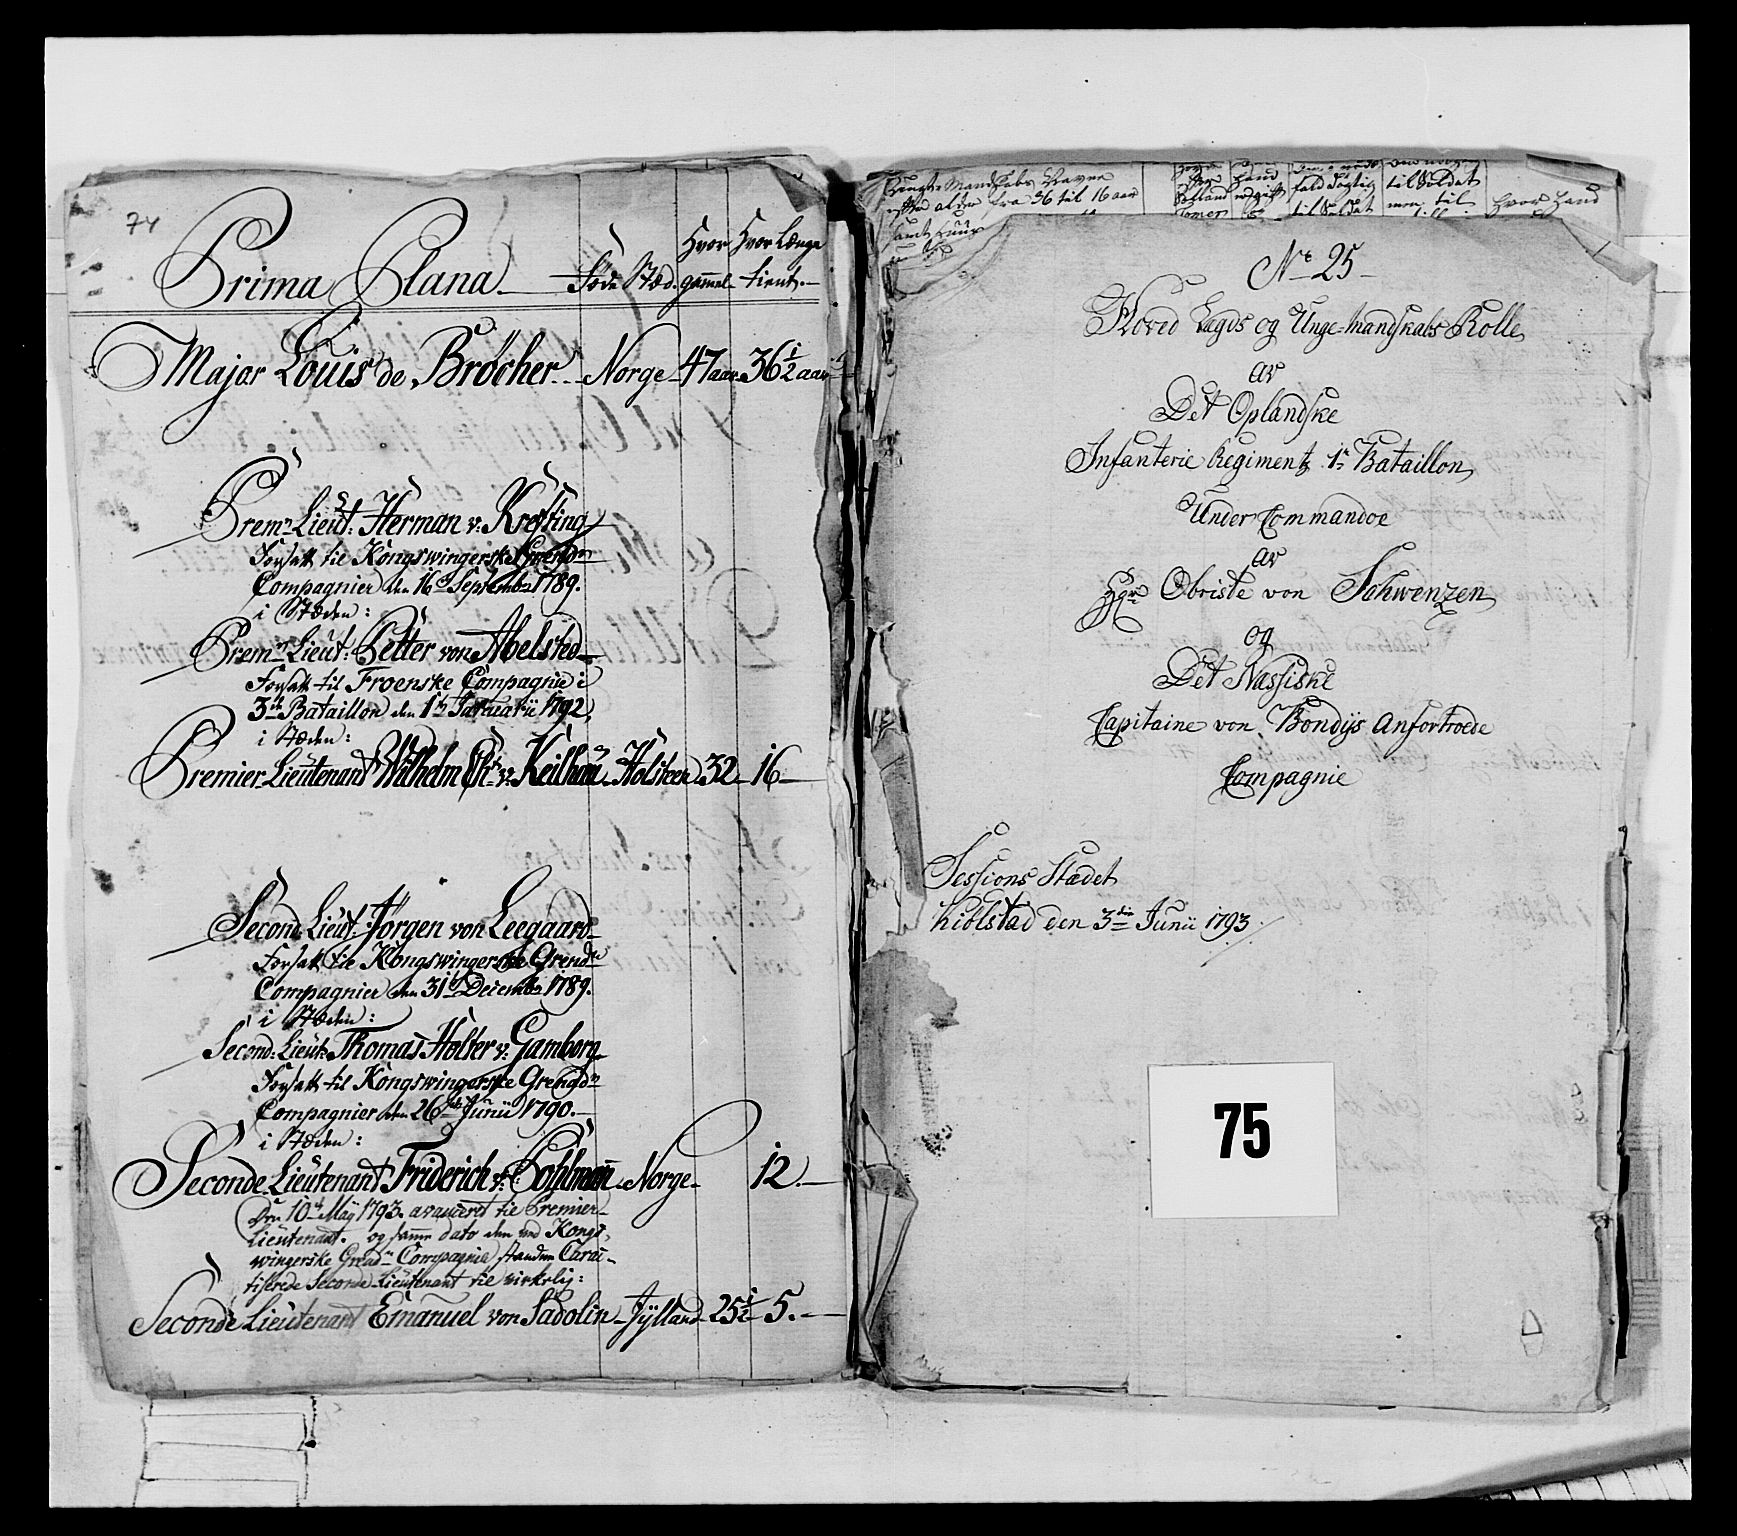 74
Hvor Hvor Længe
Prima Plana Føde Stæd. gammel tient.
Major Louis de Brøcher Norge 47 aar 36 1/2 aar
Prem: Lieut: Herman v: Krefting
Forsatt til Kongswingerske Grenad:
Compagnier den 16de Septembr 1789.
i Stæden:
Prem: Lieut: Petter von Abelsted
Forsatt til Froenske Compagnie i
3die Bataillon den 1te Januarii 1792,
i Stæden:
Premier-Lieutenant Wilhelm Ch: v: Keilhau Holsteen 32 16
Second Lieut: Jörgen von Leegaard
Forsatt til Kongswingerske Grenad:
Compagnier den 31te Decembr 1789.
i Stæden:
Second: Lieut: Thomas Holter v: Gamborg
Forsatt til Kongswingerske Grenad:
Compagnier den 26de Junii 1790.
i Stæden:
Seconde Lieutenant Friderich v: Pohlmann Norge 12.
Den 10de Maÿ 1793. avanceret til Premier-
Lieutenant. og samme dato den ved Kongs-
wingerske Grenad: Compagnie standne Carac-
tiserede Seconde Lieutenant til virkelig:
Seconde Lieutenant Emanuel von Sadolin Jÿlland 25 1/2 5.
Mandskabs Navne
efter alder fra 36 til 16 aar
til Soldat
Hvor Hand
No 25
Hoved Lægds og Unge-Mandskabs Rolle
av
Det Oplandske
Infanterie Regiments 1te Bataillon
Under Commandoe
av
Hgr Obriste von Schwenzen
og
Det Næssiske
Capitaine von Bondÿs Anfortroede
Compagnie
Sessions Stædet
Kiølstad den 3die Junii 1793
75